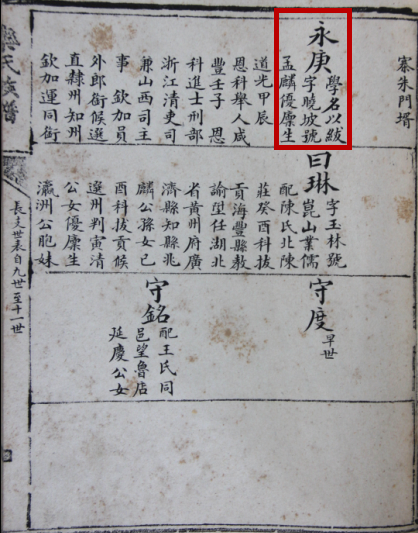 寨朱門壻
永庚
學名以紱
字曉坡號
孟麟優廩生
道光甲辰
恩科舉人咸
豐壬子 恩
科進士刑部
浙江清吏司
兼山西司主
事 欽加員
外郎銜候選
直隸州知州
欽加運同銜
曰琳
字玉林號
崑山業儒
配陳氏北陳
莊癸酉科拔
貢海豐縣教
諭堃任湖北
省黄州府廣
濟縣知縣兆
麟公孫女已
酉科拔貢候
選州判寅清
公女優廩生
瀛洲公胞妹
守度
早世
守銘
配王氏同
邑望魯店
延慶公女
氏族譜
長支世表自九世至十一世